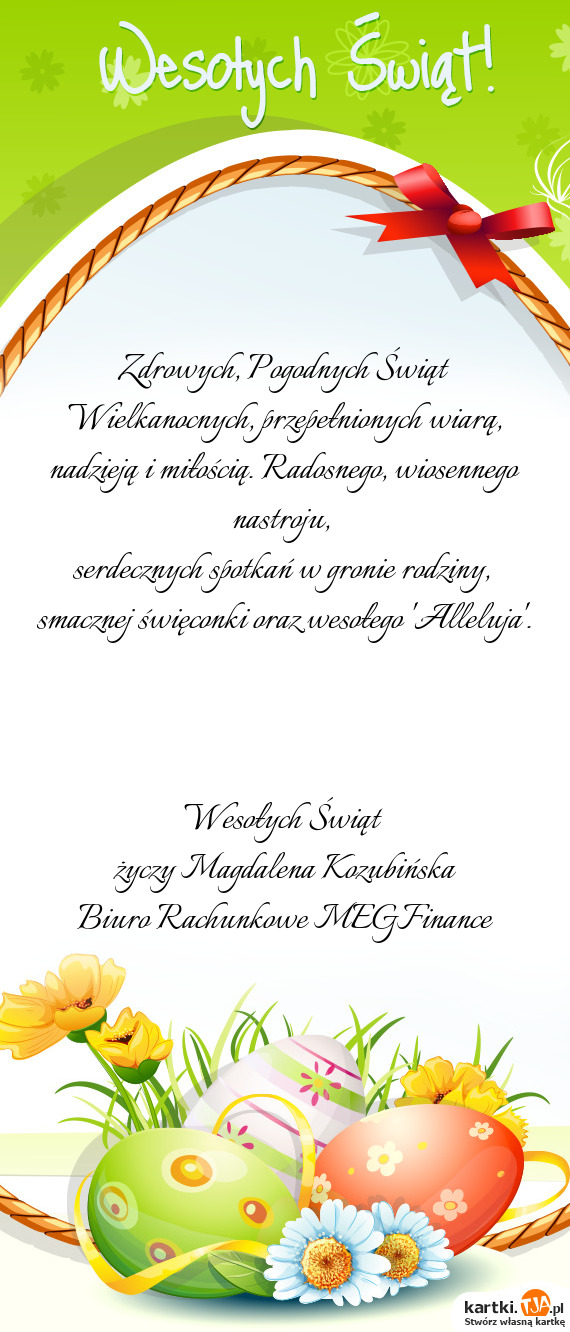 Wesołych Świąt!
Zdrowych, Pogodnych Świąt
Wielkanocnych, przepełnionych wiarą,
nadzieją i miłością. Radosnego, wiosennego
nastroju,
serdecznych spotkań w gronie rodziny,
smacznej święconki oraz wesołego ' Alleluja'.
Wesołych Świąt
życzy Magdalena Kozubińska
Biuro Rachunkowe MEGFinance
kartki.TJA.pl
Stwórz własną kartkę